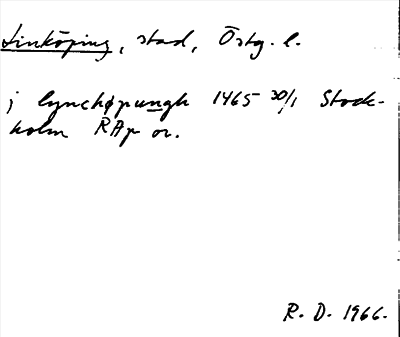 Linköping, stad, Östg. l.
j lynchøpungh 1465 30/1 Stock-
holm RAp or.
R. D. 1966.